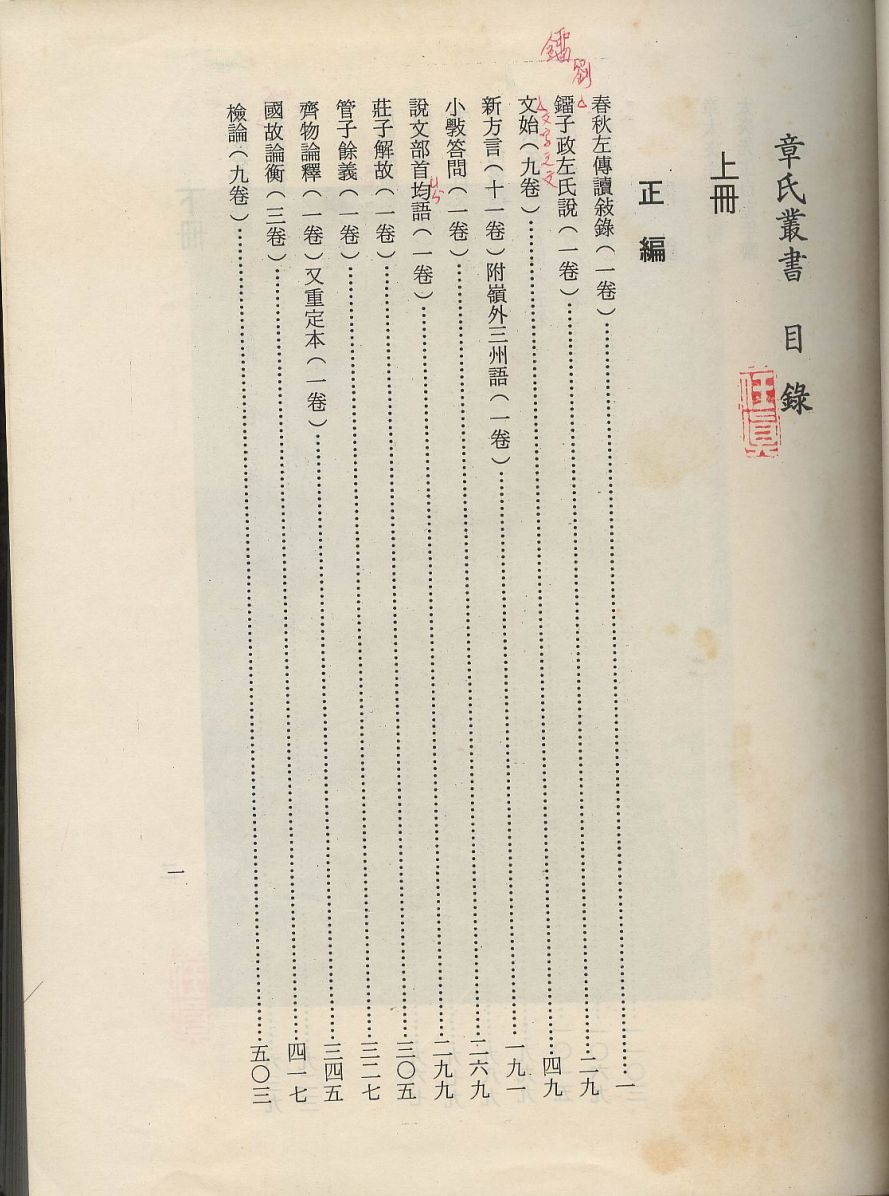 章氏叢書 目錄
上冊
正編
春秋左傳讀敍錄（一卷）……一
劉
鐂
鐂子政左氏說（一卷）……二九
文始（九卷）……四九
新方言（十一卷）附嶺外三州語（一卷）……一九一
小斅答問（一卷）……二六九
說文部首均語（一卷）……二九九
莊子解故（一卷）……三〇五
管子餘義（一卷）……三二七
齊物論釋（一卷）又重定本（一卷）……三四五
國故論衡（三卷）……四一七
檢論（九卷）……五〇三
一